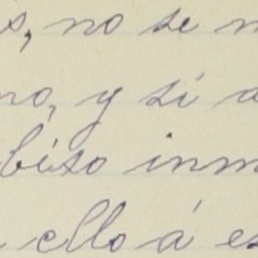 s, no se m
no, y si a
biso inm
ello á es